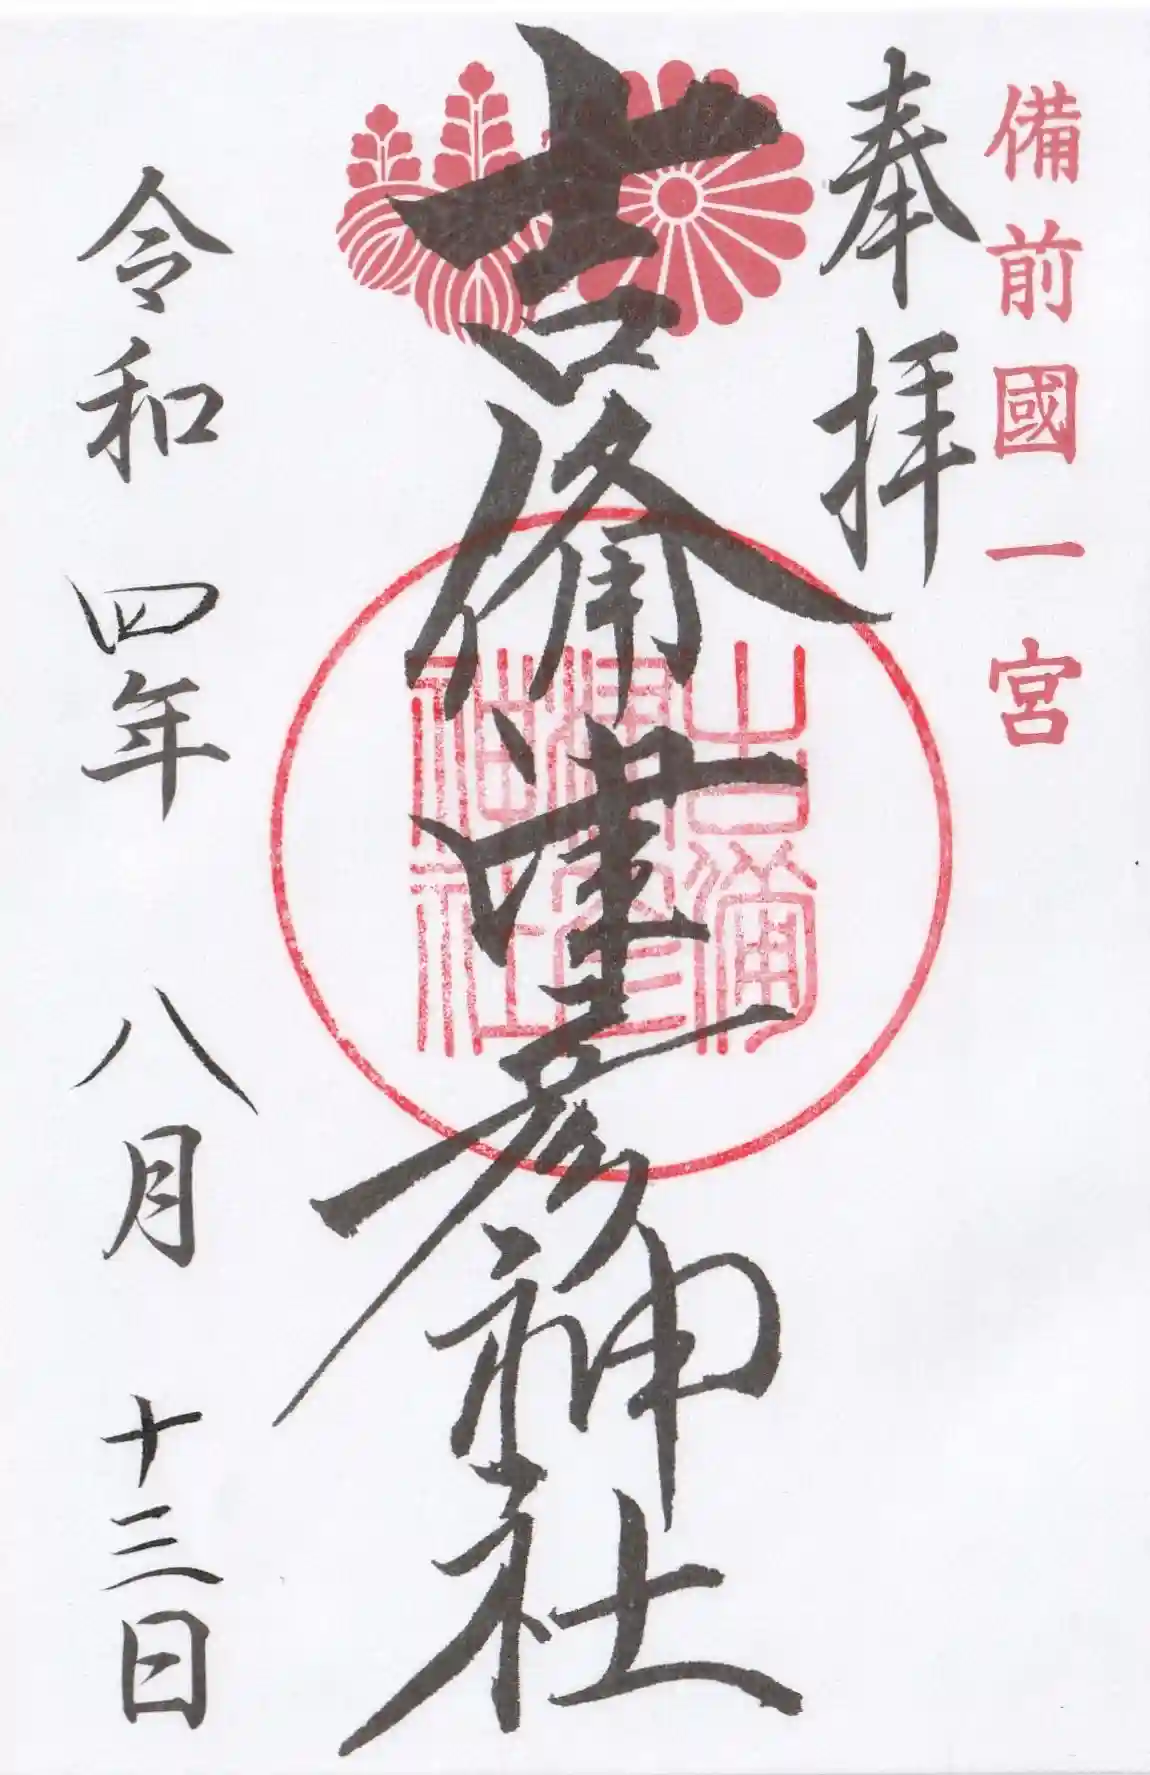 備前國一宮
奉拝
吉備津彦神社
吉備津彦神社
令和四年八月十三日